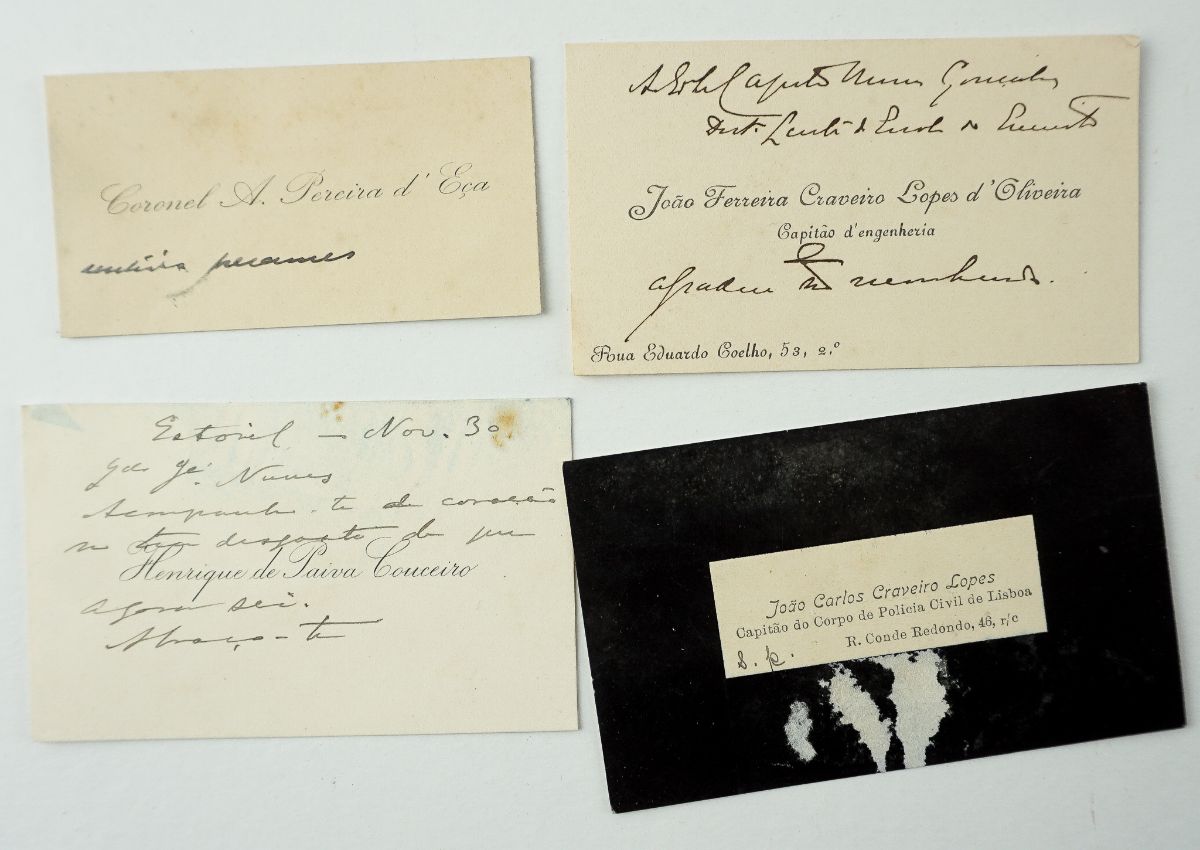 Coronel A. Pereira d' Eça
sentidos pesames
Capitão Nunes Gonçalves
João Ferreira Craveiro Lopes d'Oliveira
Capitão d'engenheria
agradece
Rua Eduardo Coelho, 53, 2.º
Estoril – Nov. 30
Nunes
Acompanho-te de coração
desgosto de que
Henrique de Paiva Couceiro
agora sei.
Abraço-te
João Carlos Craveiro Lopes
Capitão do Corpo de Policia Civil de Lisboa
R. Conde Redondo, 46, r/c
s. p.